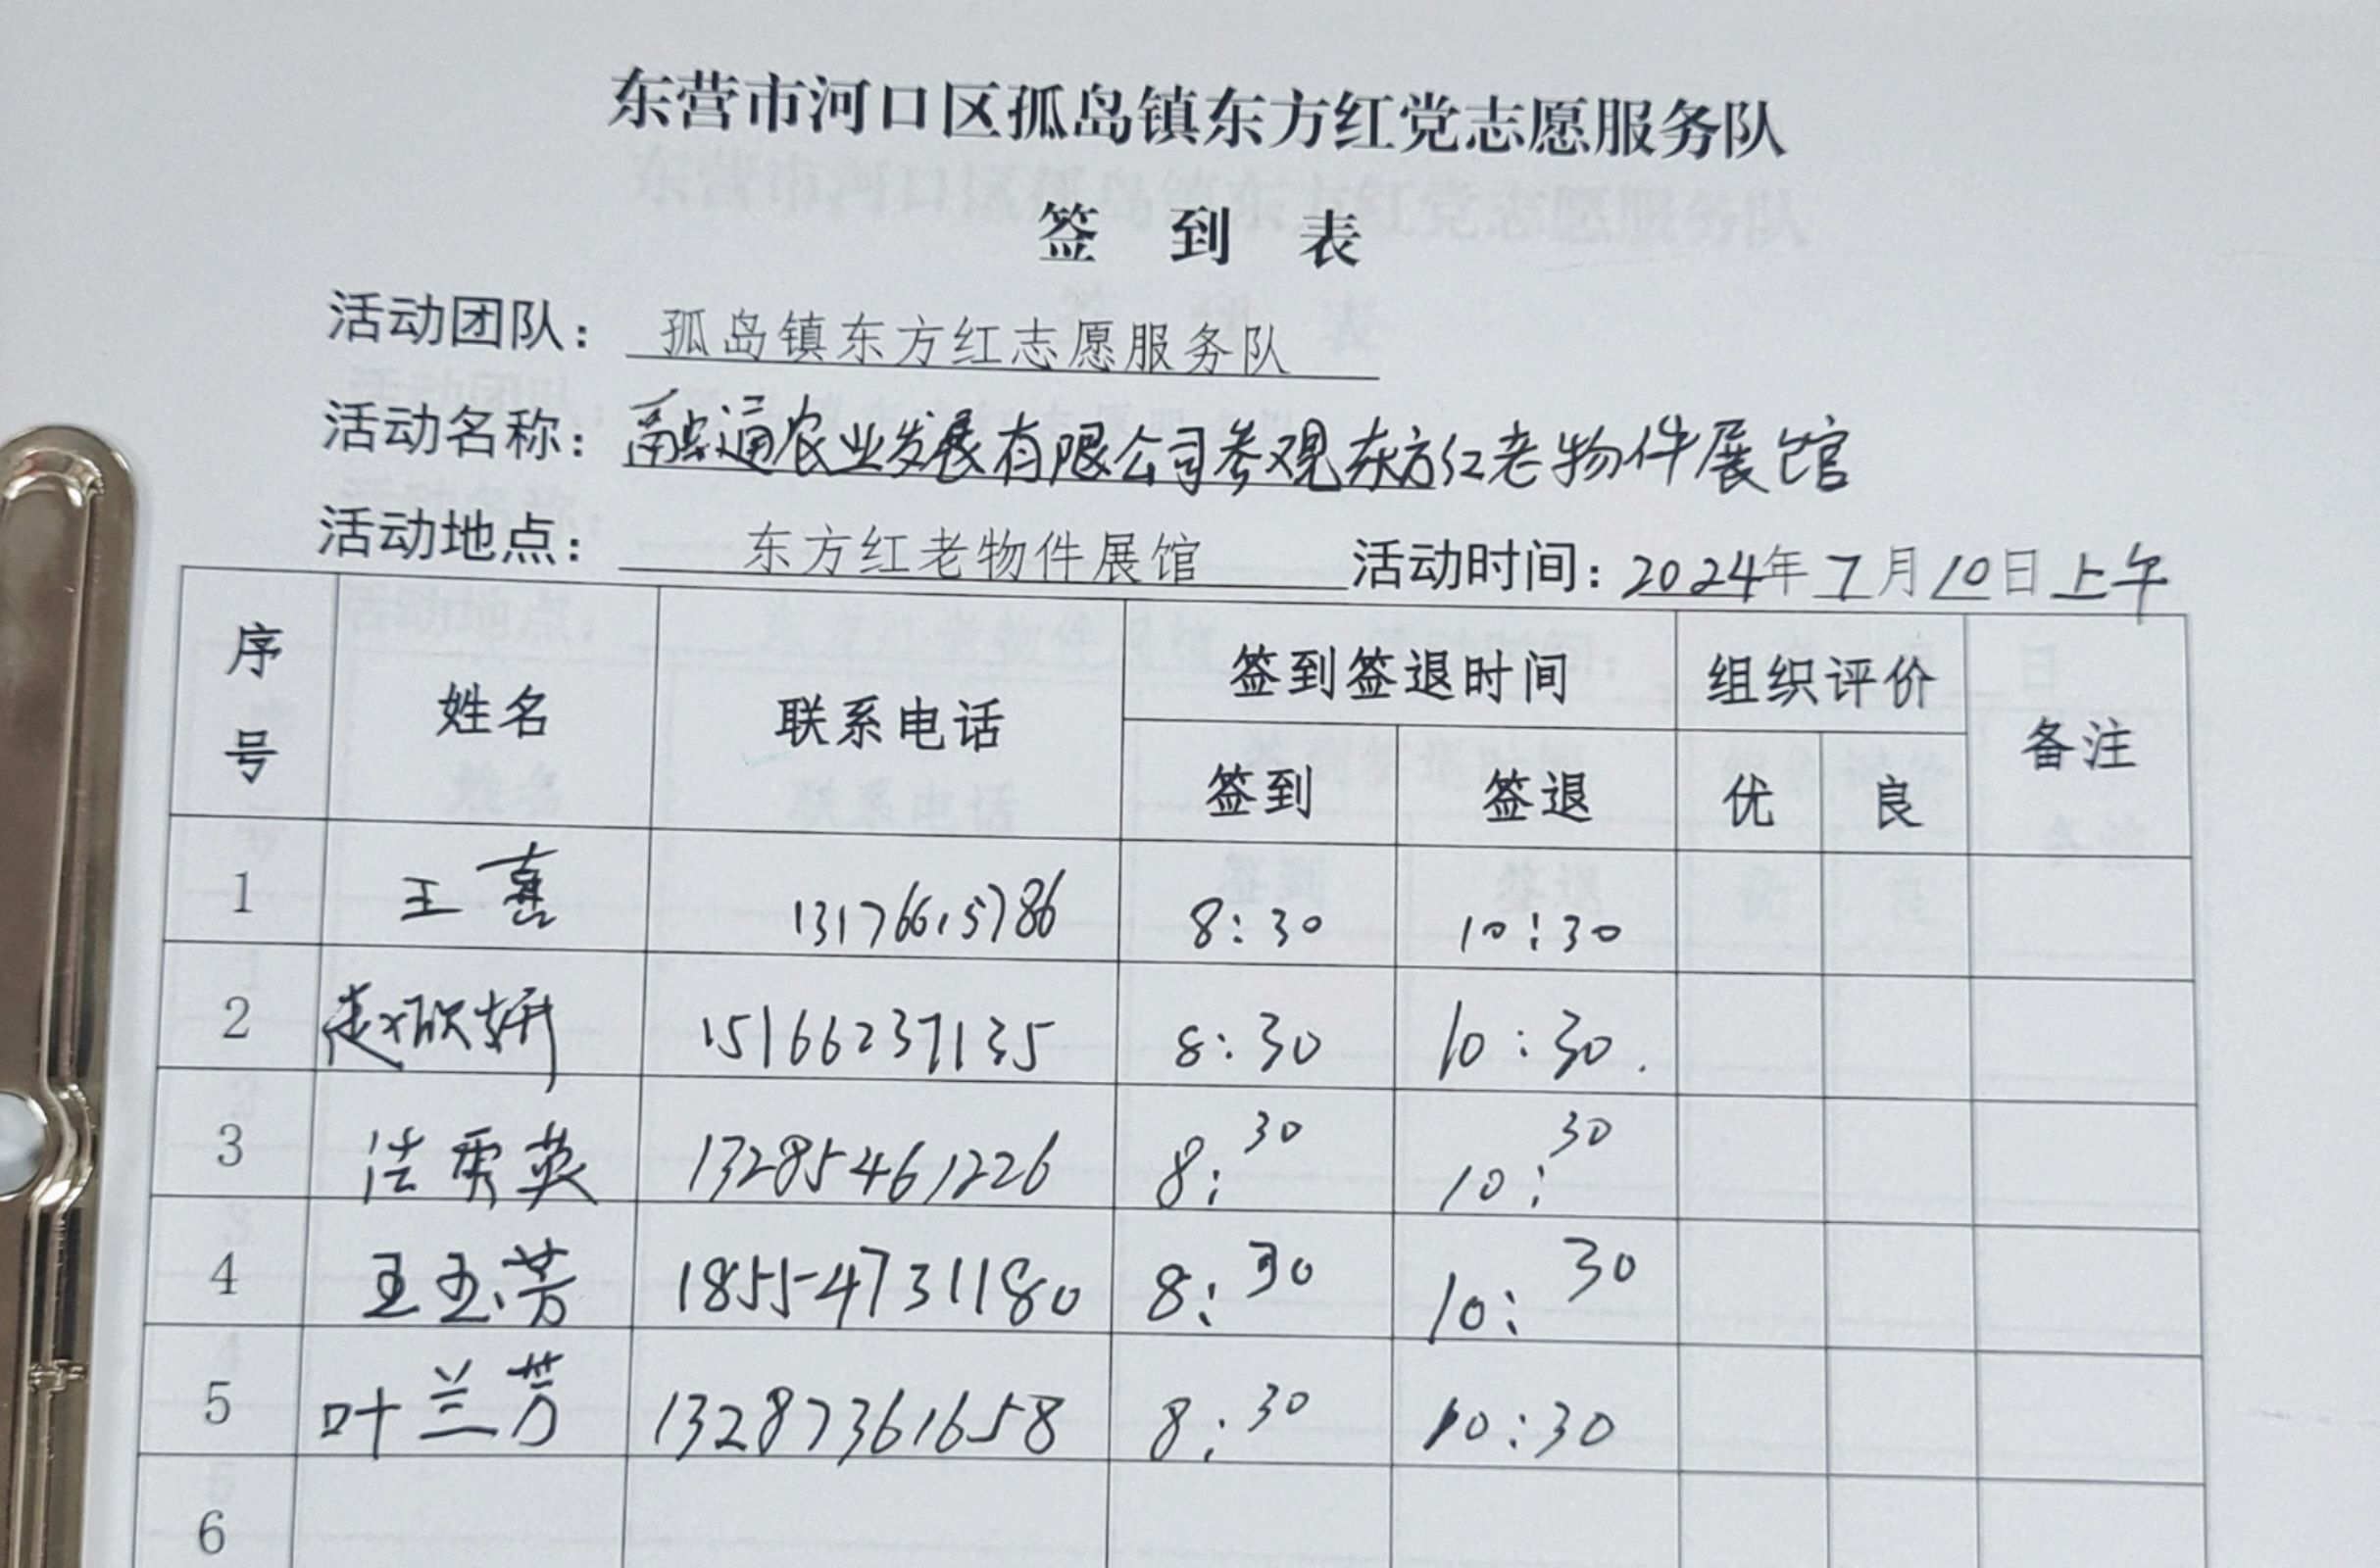 东营市河口区孤岛镇东方红党志愿服务队
签 到 表
活动团队： 孤岛镇东方红志愿服务队
活动名称： 融通农业发展有限公司参观东方红老物件展馆
活动地点： 东方红老物件展馆 活动时间：2024年7月10日上午
序号 姓名 联系电话 签到签退时间 组织评价 备注
签到 签退 优 良
1 王 13176615786 8:30 10:30
2 赵欣妍 15166237135 8:30 10:30.
3 英 13285461226 8:30 10:30
4 王玉芳 18554731180 8:30 10:30
5 叶兰芳 13287361658 8:30 10:30
6